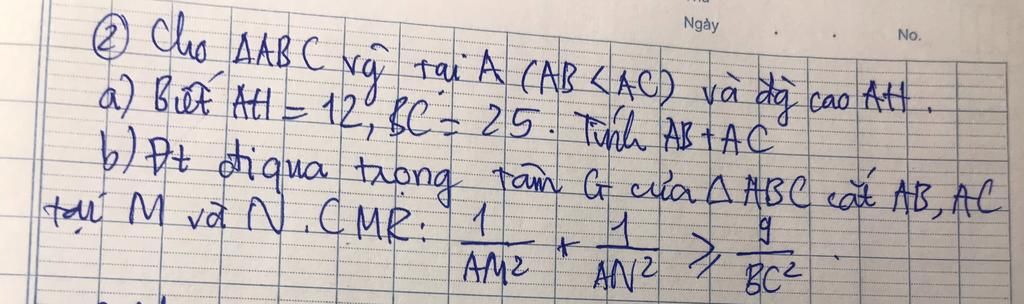 Ngày . . No.
② Cho ΔABC vg tại A (AB < AC) và đg cao AH.
a) Biết AH = 12, BC = 25. Tính AB + AC
b) Đt đi qua trọng tâm G của Δ ABC cắt AB, AC
tại M và N. CMR: 1/AM² + 1/AN² ≥ 9/BC².